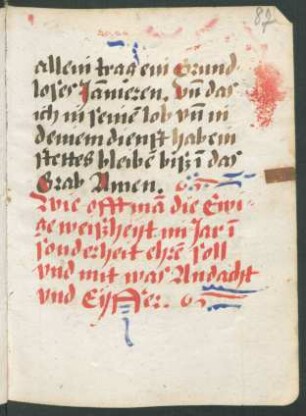 82
allein trag ein Grund
loses Jam̄eren. Vn̄ das
ich in seinē lob vn̄ in
deinem dienst hab ein
stettes bleibē biß ī das
Grab Amen.
Wie offt mā die Ewi
ge weißheyt im Jar ī
sonderheit ehrē soll
vnd mit was Andacht
vnd Eyffer.